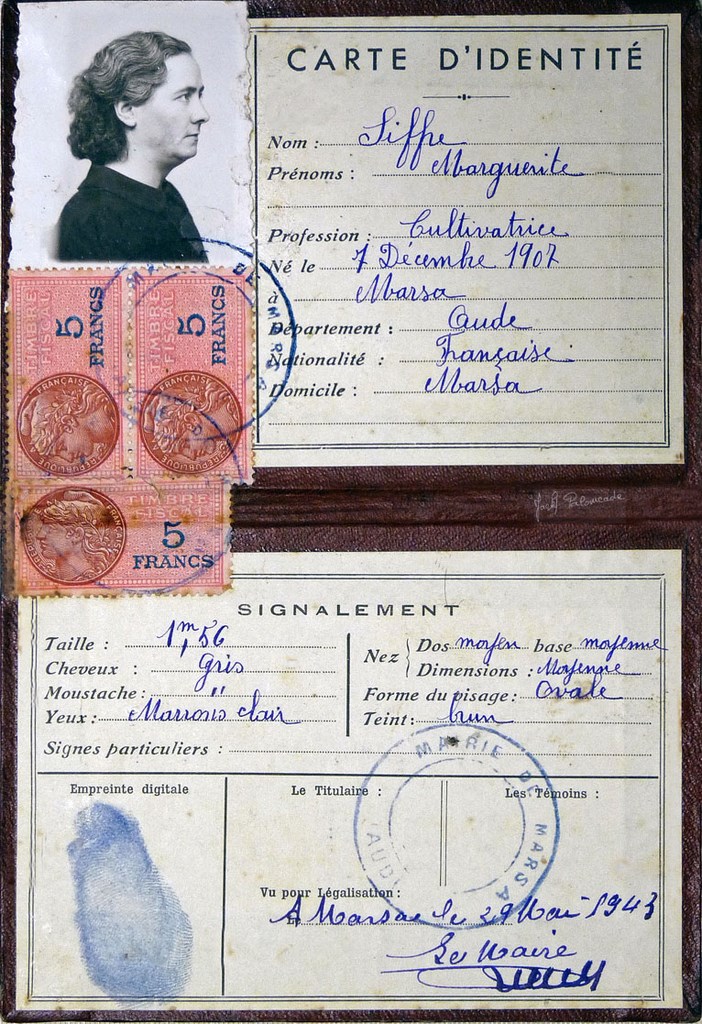 CARTE D'IDENTITÉ
Nom : Siffre
Prénoms : Marguerite
Profession : Cultivatrice
Né le 7 Décembre 1907
à Marsa
Département : Aude
Nationalité : Française
Domicile : Marsa
MAIRIE DE MARSA
TIMBRE FISCAL
5 FRANCS
RÉPUBLIQUE FRANÇAISE
TIMBRE FISCAL
5 FRANCS
RÉPUBLIQUE FRANÇAISE
TIMBRE FISCAL
5 FRANCS
RÉPUBLIQUE FRANÇAISE
SIGNALEMENT
Taille : 1m,56
Cheveux : gris
Moustache : "
Yeux : Marrons clair
Nez Dos moyen base moyenne
Dimensions : Moyenne
Forme du visage : Ovale
Teint : brun
Signes particuliers :
Empreinte digitale
Le Titulaire :
Les Témoins :
MAIRIE DE MARSA
AUDE
Vu pour Légalisation :
A Marsa le 29 Mai 1943
Le
Le Maire